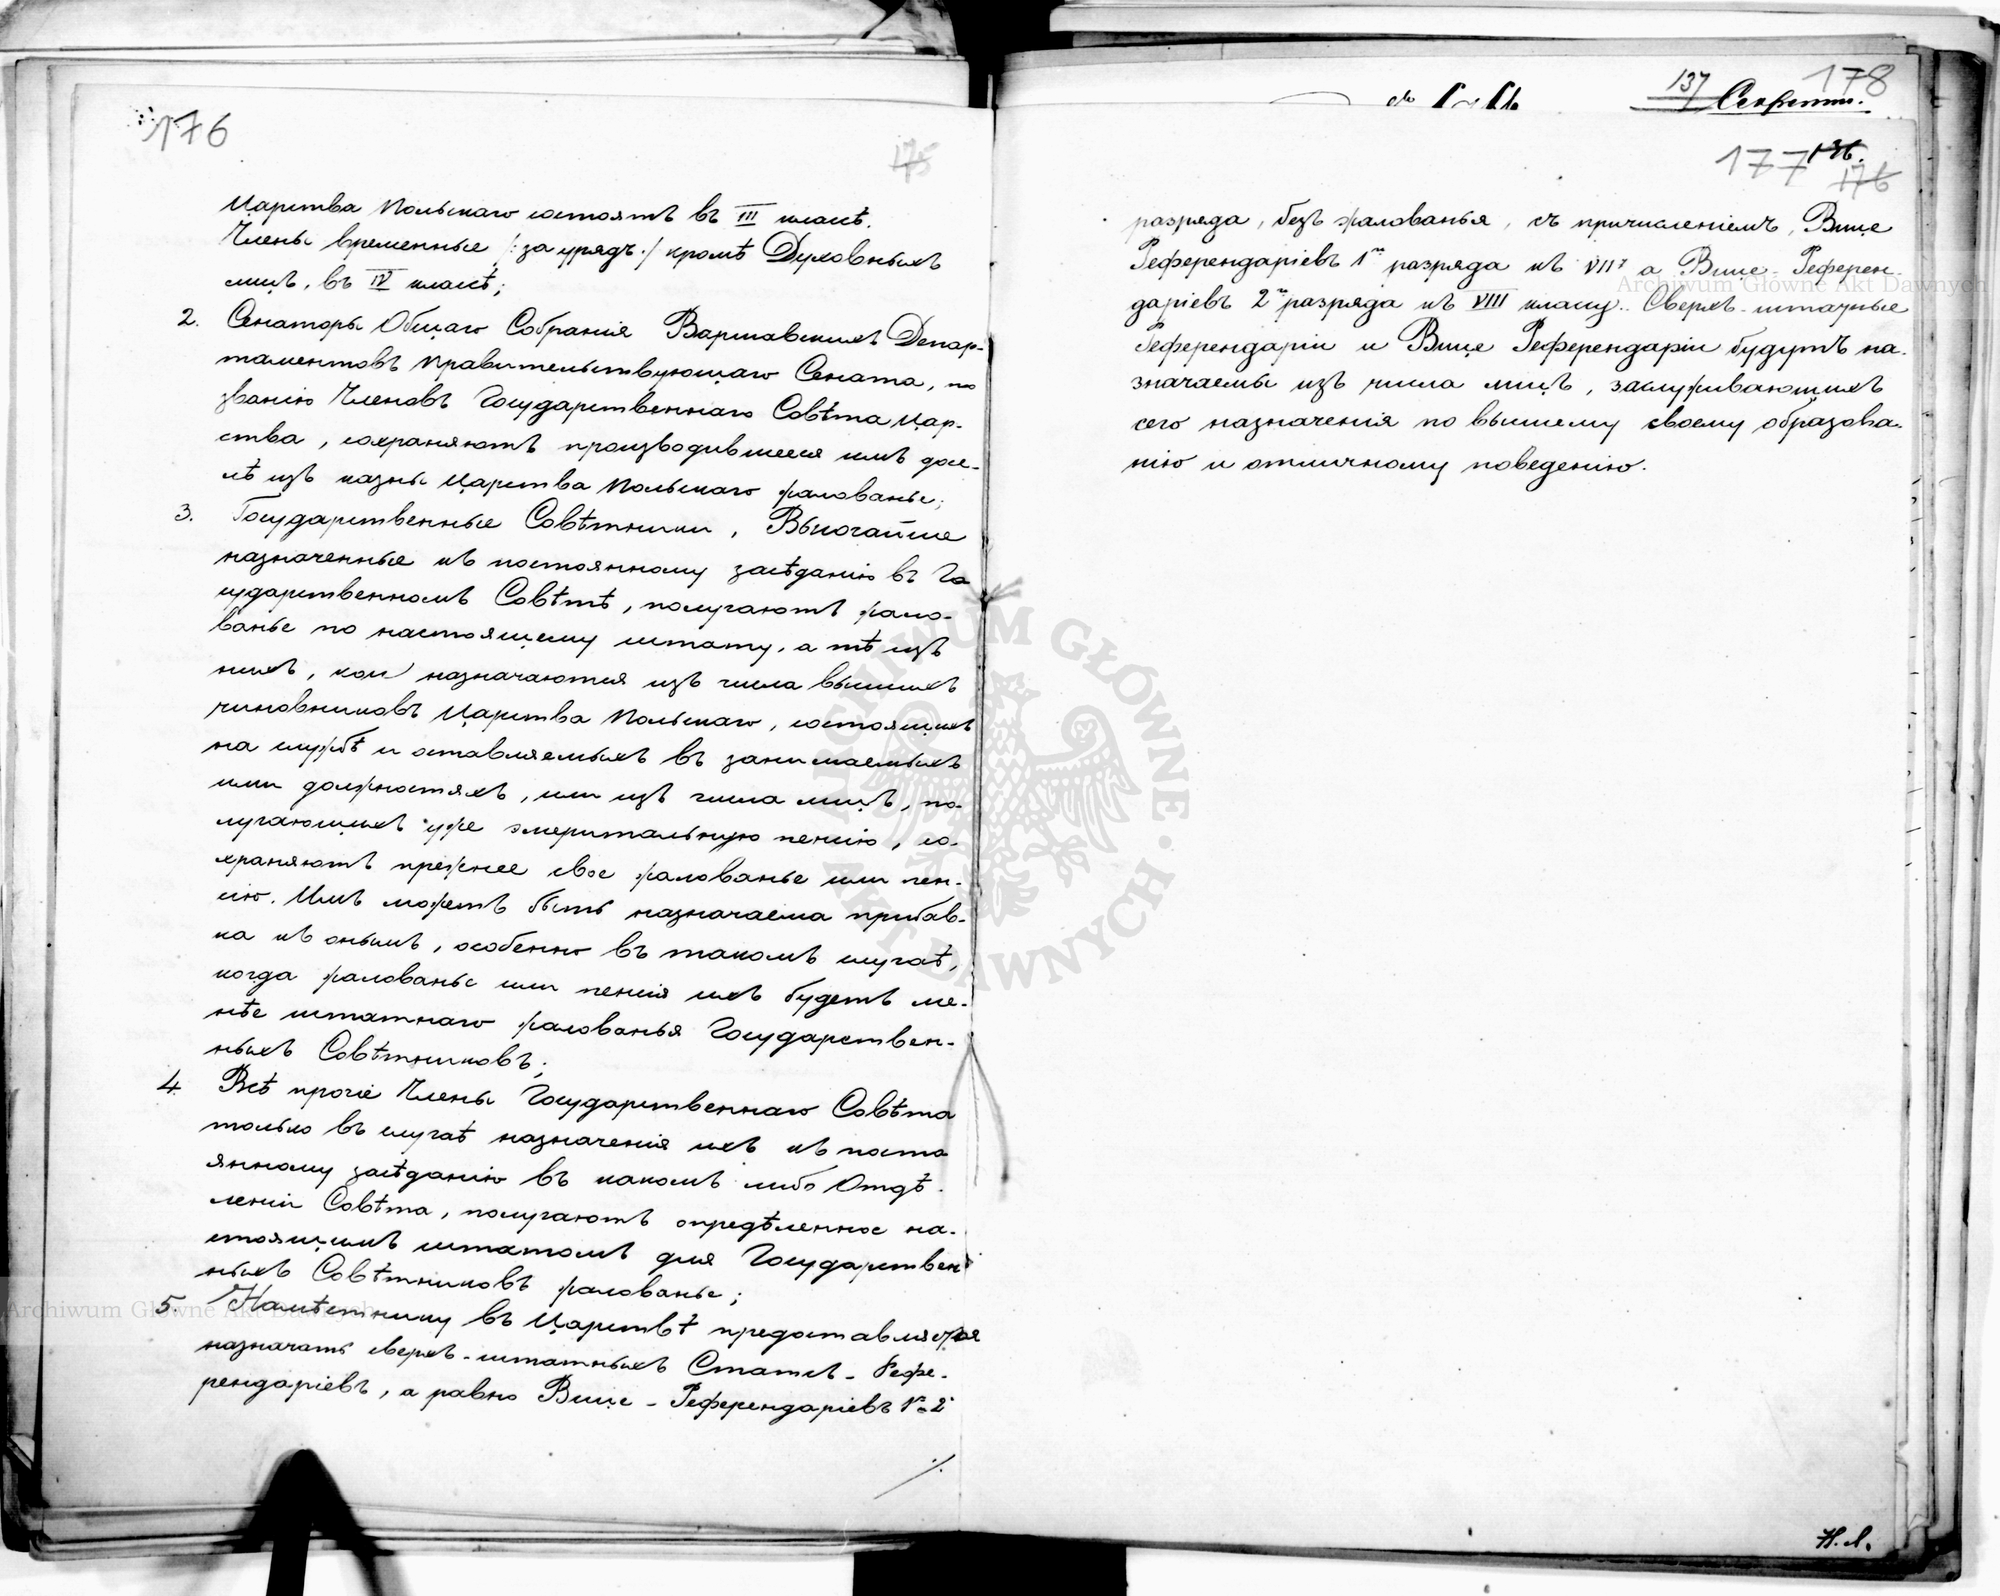 176
175
Царства Польскаго состоятъ въ III классѣ.
Члены временные /: за урядъ :/ кромѣ Духовныхъ
лицъ, въ IV классѣ;
2. Сенаторы Общаго Собранія Варшавскихъ Депар-
таментовъ Правительствующаго Сената, по
званію Членовъ Государственнаго Совѣта Цар-
ства, сохраняютъ производившееся имъ досе-
лѣ изъ казны Царства Польскаго жалованье;
3. Государственные Совѣтники, Высочайше
назначенные къ постоянному засѣданію въ Го
сударственномъ Совѣтѣ, получаютъ жало-
ванье по настоящему штату, а тѣ изъ
нихъ, кои назначаются изъ числа высшихъ
чиновниковъ Царства Польскаго, состоящихъ
на службѣ и оставляемыхъ въ занимаемыхъ
ими должностяхъ, или изъ числа лицъ, по-
лучающихъ уже эмеритальную пенсію, со-
храняютъ прежнее свое жалованье или пен-
сію. Имъ можетъ быть назначаема прибав-
ка къ онымъ, особенно въ такомъ случаѣ,
когда жалованье или пенсія ихъ будетъ ме-
нѣе штатнаго жалованья Государствен-
ныхъ Совѣтниковъ;
4. Всѣ прочіе Члены Государственнаго Совѣта
только въ случаѣ назначенія ихъ къ посто
янному засѣданію въ какомъ либо Отдѣ-
леніи Совѣта, получаютъ опредѣленное на-
стоящимъ штатомъ для Государствен
ныхъ Совѣтниковъ жалованье;
5. Намѣстнику въ Царствѣ предоставляется
назначать сверхъ-штатныхъ Статсъ-Рефе-
рендаріевъ, а равно Вице-Референдаріевъ 1го 2
./.
137 178
Секретно.
177 136.
176
разряда, безъ жалованья, съ причисленіемъ, Вице
Референдаріевъ 1го разряда къ VII, а Вице-Референ-
даріевъ 2го разряда къ VIII классу. Сверхъ-штатные
Референдаріи и Вице Референдаріи будутъ на-
значаемы изъ числа лицъ, заслуживающихъ
сего назначенія по высшему своему образова-
нію и отличному поведенію.
Н. Л.
Archiwum Główne Akt Dawnych
Archiwum Główne Akt Dawnych
ARCHIWUM GŁÓWNE AKT DAWNYCH